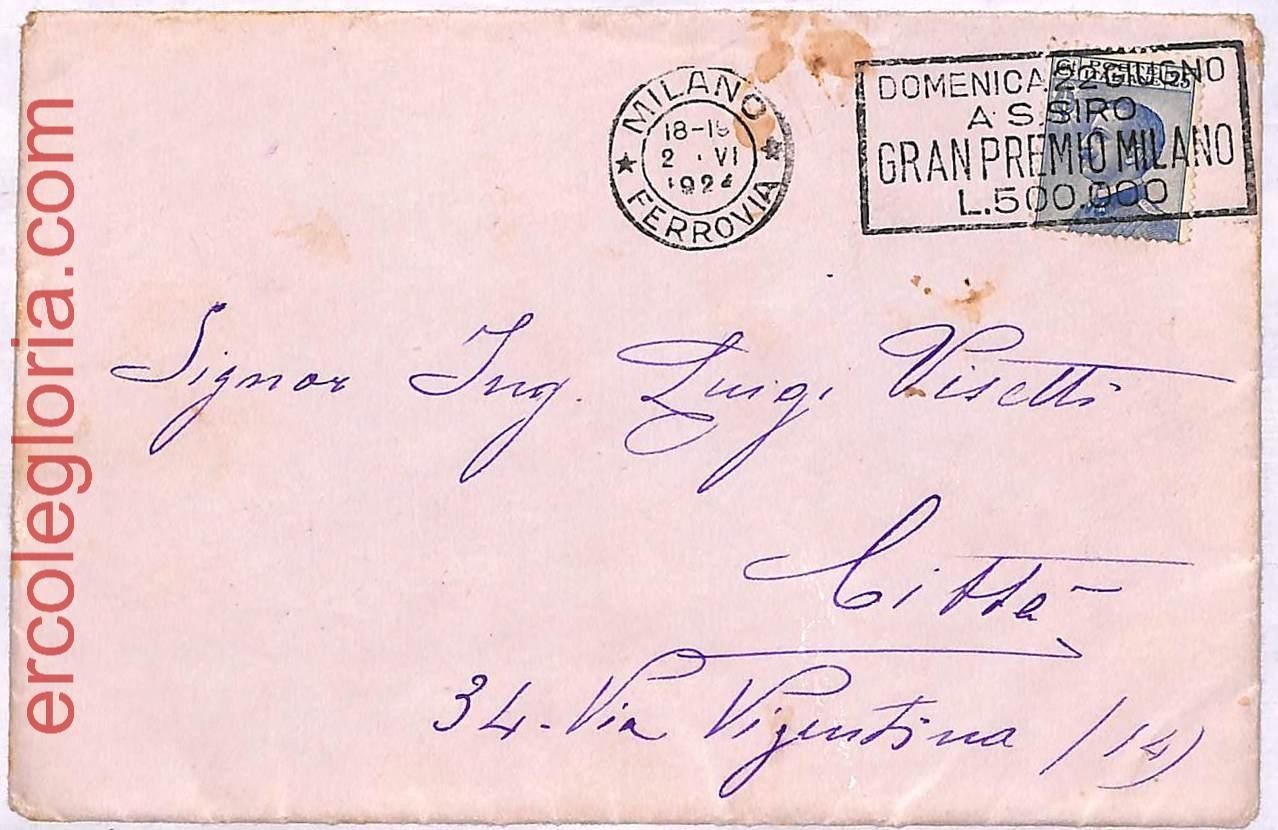 MILANO
18-19
2 · VI
1924
FERROVIA
DOMENICA 22 GIUGNO
A S.SIRO
GRAN PREMIO MILANO
L.500.000
25
Signor Ing. Luigi Visetti
Città
34 - Via Vigentina (14)
ercolegloria.com